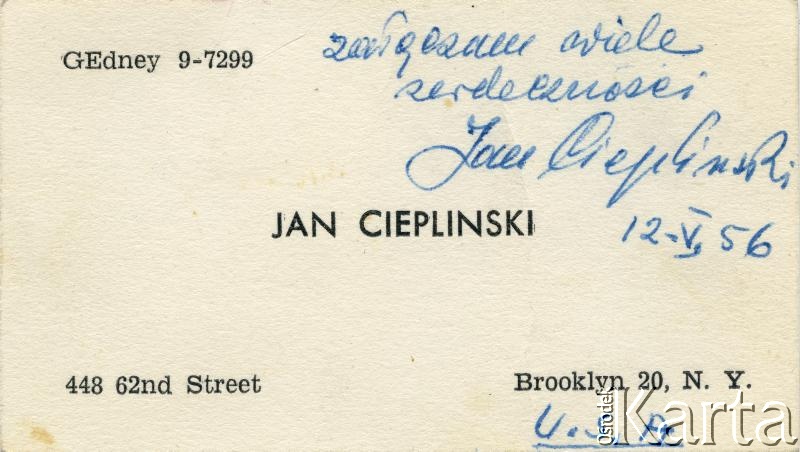 GEdney 9-7299
załączam wiele
serdeczności
Jan Cieplinski
12-V, 56
JAN CIEPLINSKI
448 62nd Street
Brooklyn 20, N. Y.
U.S.A.
Ośrodek
Karta